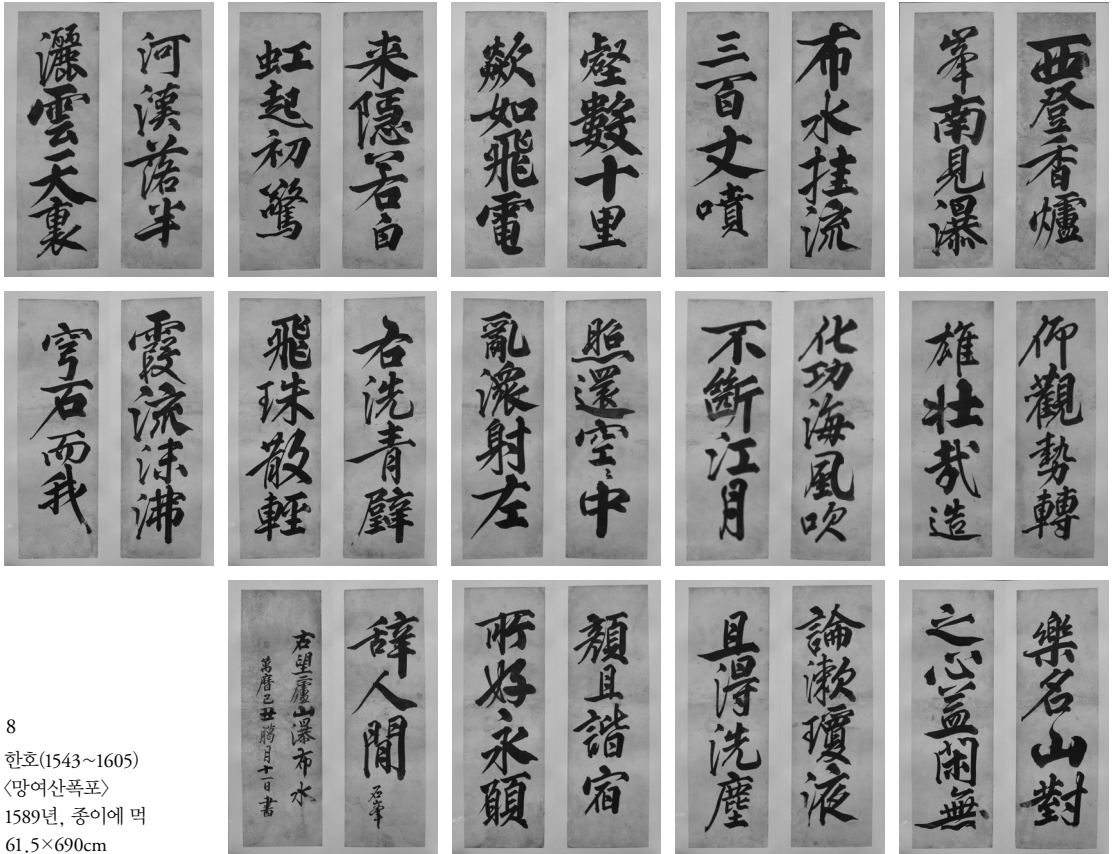 西登香爐
峯南見瀑
布水挂流
三百丈噴
壑數十里
歘如飛電
来隱若白
虹起初驚
河漢落半
灑雲天裏
仰觀勢轉
雄壮哉造
化功海風吹
不斷江月
照還空〻中
亂潀射左
右洗青壁
飛珠散輕
霞流沫沸
穹石而我
樂名山對
之心益閑無
論漱瓊液
且得洗塵
顔且諧宿
所好永願
辞人間 石峯
右望廬山瀑布水
萬曆己丑臘月十一日書
8
한호(1543~1605)
〈망여산폭포〉
1589년, 종이에 먹
61.5×690cm